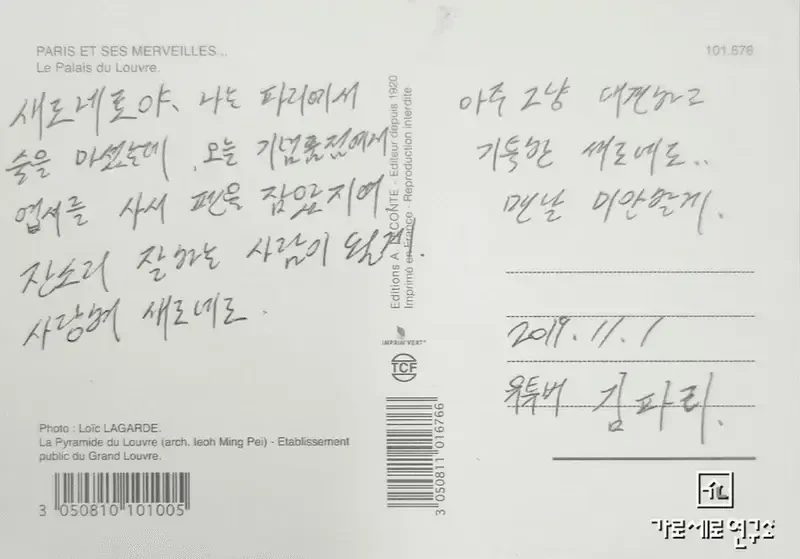 PARIS ET SES MERVEILLES...
Le Palais du Louvre.
101.676
새로네로야, 나는 파리에서
술을 마셨는데, 오늘 기념품점에서
엽서를 사서 펜을 잡았지여
잔소리 잘하는 사람이 될게.
사랑혀 새로네로.
아주 그냥 대견하고
기특한 새로네로..
맨날 미안할게.
2019.11.1
유투버 김파리.
Editions A. LECONTE - Editeur depuis 1920
Imprimé en France - Reproduction interdite
IMPRIM'VERT
TCF
Photo : Loïc LAGARDE.
La Pyramide du Louvre (arch. Ieoh Ming Pei) - Etablissement
public du Grand Louvre.
3 050810 101005
3 050811 016766
가로세로연구소